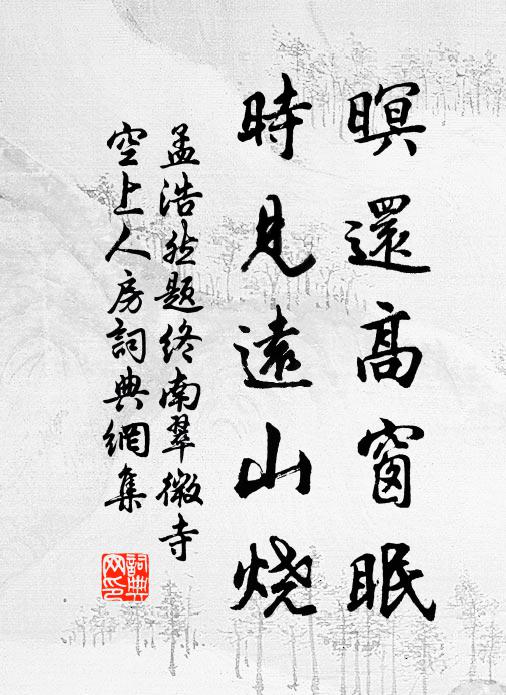 暝還高窗眠
時見遠山烧
孟浩然题终南翠微寺
空上人房詞典網集
詞典
网印